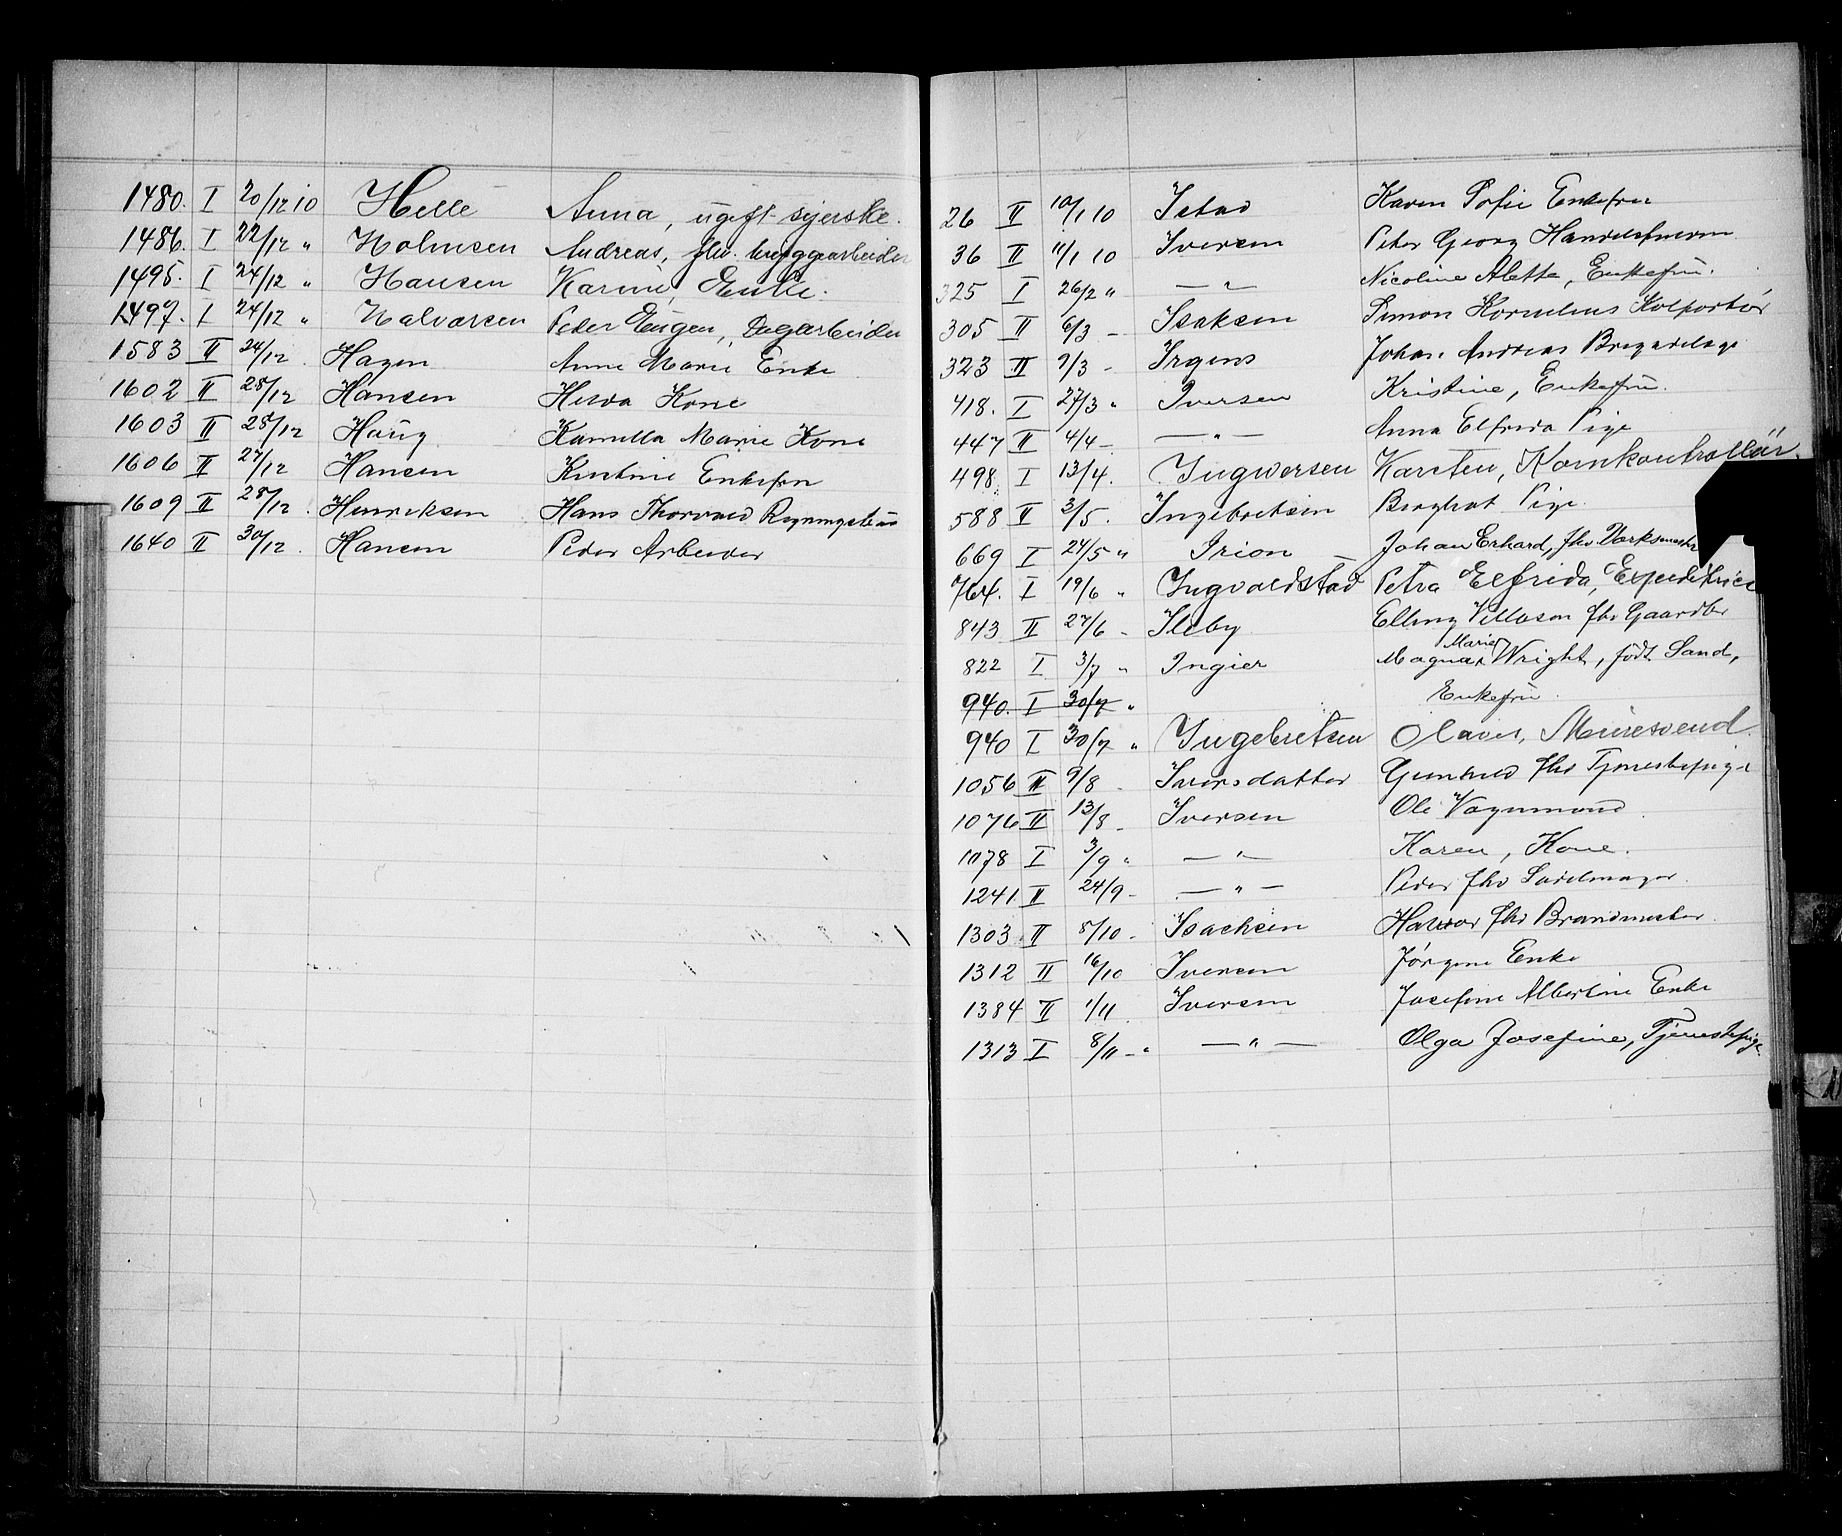 1480. I 20/12 10 Helle Anna, ugift syerske.
1486. I 22/12 " Holmsen Andreas, fhv. bryggearbeider
1495. I 24/12 " Hansen Karine, Enke.
1497. I 24/12 " Halvorsen Peder Eugen, Dagarbeider
1583 II 24/12 . Hagen Anne Marie Enke
1602 II 25/12 Hansen Hilda Kone
1603 II 25/12 Haug Kamilla Marie Kone
1606 II 27/12 Hansen Kristine Enkefru
1609 II 28/12 . Henriksen Hans Thorvald
1640 II 30/12 . Hansen Peder Arbeider
26 II 10/1 10 Istad Karen Sofie Enkefru
36 II 11/1 10 Iversen Peter Georg
325 I 26/2 " — " — Nicoline Aletta, Enkefru.
305 II 6/3 – Isaksen Simon Kornelius Kolportør
323 II 7/3 – Irgens Johan Andreas Brigadelæge
418. I 27/3 " Iversen Kristine, Enkefru.
447 II 4/4 – — " — Anna Elfrida Pige
498 I 13/4. Ingwersen Karsten, Kornkontrollør.
588 II 3/5. Ingebretsen Borghat Pige
669 I 24/5 " Irion Johan Erhard, fhv. Værksmester
764. I 19/6 " Ingvaldstad Petra Elfrida, Expeditrice
843 II 27/6 – Ileby Elling fhv Gaardbr
822 I 3/7 " Ingier Magna Marie Wright, født Sand,
Enkefru.
940. I 30/7 "
940 I 30/7 " Ingebretsen Olaves, Muresvend
1056 II 9/8 – Iversdatter Gunhild fhv Tjenestepige
1076 II 13/8 – Iversen Ole Vognmand
1078 I 3/9 " — " — Karen, Kone.
1241 II 24/9 – — " — Peder fhv Sadelmager.
1303 II 8/10 – Isachsen Halvor fhv Brandmester.
1312 II 16/10 Iversen Jørgine Enke
1384 II 1/11 Iversen Josefine Albertine Enke
1313 I 8/11 – " — " — Olga Josefine, Tjenestepige